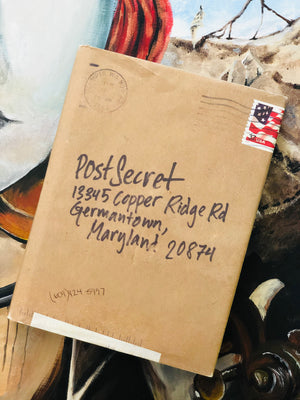 PostSecret
13345 Copper Ridge Rd
Germantown,
Maryland 20874